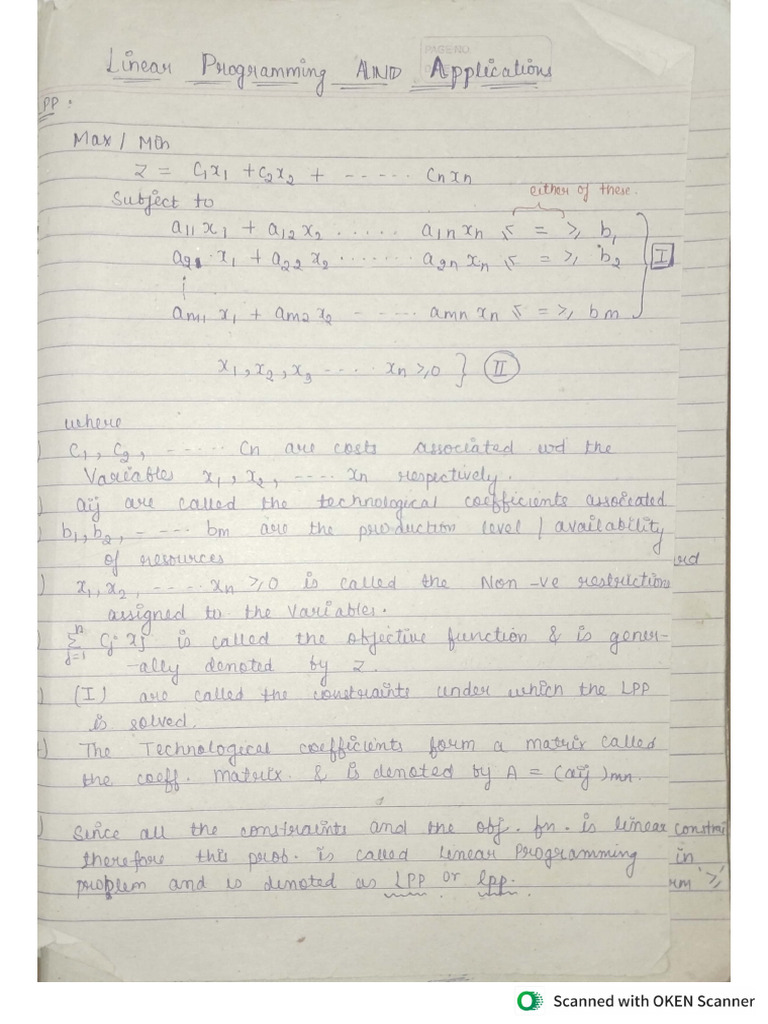 PAGE NO
Linear Programming AND Applications
PP:
Max / Min
Z = C₁x₁ + C₂x₂ + ------ Cnxn
either of these.
Subject to
a₁₁ x₁ + a₁₂ x₂ ...... a₁n xn ≤ = ≥ b₁
a₂₁ x₁ + a₂₂ x₂ ....... a₂n xn ≤ = ≥ b₂
I
am₁ x₁ + am₂ x₂ - ----- amn xn ≤ = ≥ bm
x₁, x₂, x₃ ----- xn ≥ 0 } II
where
) C₁, C₂, ------ Cn are costs associated wd the
Variables x₁, x₂, ----- xn respectively.
) aij are called the technological coefficients associated
) b₁, b₂, - ---- bm are the production level / availability
of resources
) x₁, x₂, ------ xn ≥ 0 is called the Non -ve restrictions
assigned to the variables.
) Σⁿj=1 Cj xj is called the objective function & is gener-
-ally denoted by Z.
) (I) are called the constraints under which the LPP
is solved.
) The Technological coefficients form a matrix called
the coeff. matrix. & is denoted by A = (aij)mn.
) Since all the constraints and the obj. fn. is linear constrai
therefore this prob. is called Linear Programming in
problem and is denoted as LPP or lpp. rm '≥'
Scanned with OKEN Scanner